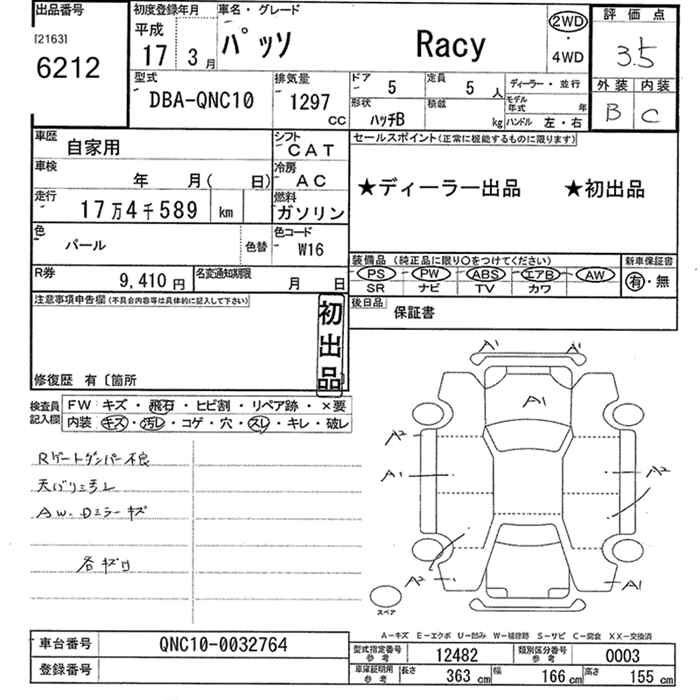 出品番号
[2163]
6212
初度登録年月
平成
17 3月
車名・グレード
パッソ Racy
2WD
・
4WD
評価点
3.5
外装 内装
B C
型式
DBA-QNC10
排気量
1297
CC
ドア 5
定員 5 人
ディーラー・並行
形状
ハッチB
積載 kg
モデル年式 年
ハンドル 左・右
車歴 自家用
シフト CAT
セールスポイント(正常に機能するものに限ります)
★ディーラー出品 ★初出品
車検 年 月( 日)
冷房 AC
走行 17万4千589 km
燃料 ガソリン
色 パール 色替
色コード W16
装備品 (純正品に限り○をつけてください)
新車保証書
PS PW ABS エアB AW
SR ナビ TV カワ
有・無
R券 9,410円
名変通知期限 月 日
後日品 保証書
注意事項申告欄(不具合内容等は具体的に記入して下さい)
初出品
修復歴 有〔箇所
検査員記入欄
FW キズ・飛石・ヒビ割・リペア跡・×要
内装 キズ・汚レ・コゲ・穴・スレ・キレ・破レ
Rゲートダンパー不良
天バリヨゴレ
AW.Dミラーキズ
各キズ
A1 A1
A1
A2
A1 A2
A2 A1
スペア
A-キズ E-エクボ U-凹み W-補修跡 S-サビ C-腐食 XX-交換済
車台番号 QNC10-0032764
登録番号
型式指定番号 参考 12482
類別区分番号 参考 0003
車庫証明用 参考 長さ 363 cm 幅 166 cm 高さ 155 cm